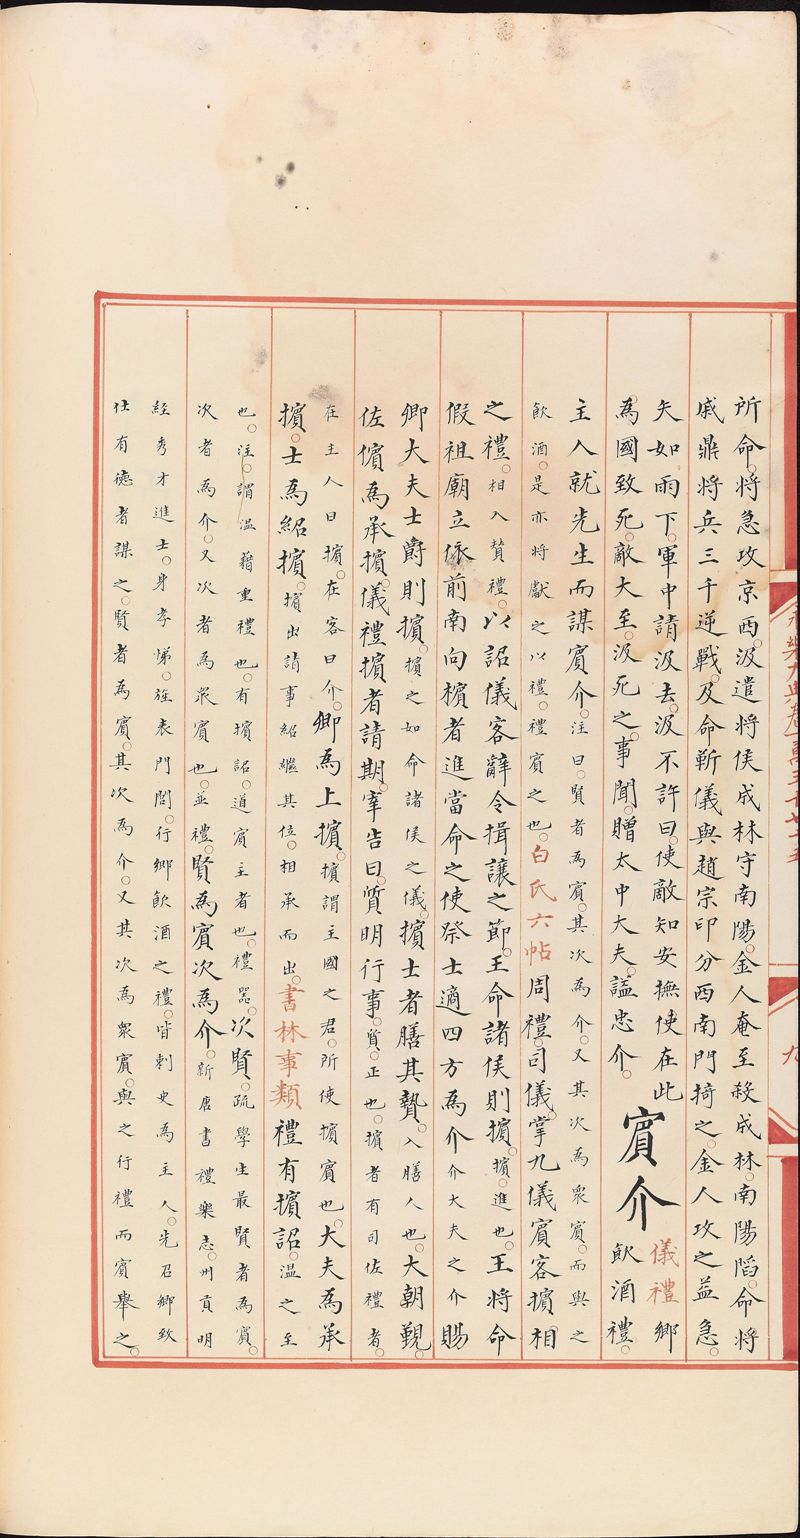 所命。將急攻京西。汲遣將侯成林守南陽。金人奄至殺成林。南陽陷。命將
戚鼎將兵三千逆戰。及命靳儀與趙宗印分西南門掎之。金人攻之益急。
矢如雨下。軍中請汲去。汲不許曰。使敵知安撫使在此
為國致死。敵大至。汲死之。事聞。贈太中大夫。謚忠介。
賓介
儀禮鄉
飲酒禮。
主人就先生而謀賓介。注曰。賢者為賓。其次為介。又其次為衆賓。而與之
飲酒。是亦將獻之以禮。禮賓之也。白氏六帖周禮。司儀。掌九儀賓客擯相
之禮。相入賛禮。以詔儀客辭令揖讓之節。王命諸侯則擯。擯。進也。王將命
假祖廟立依前南向擯者進當命之使祭士適四方為介介大夫之介賜
卿大夫士爵則擯。擯之如命諸侯之儀。擯士者膳其贄。入膳人也。大朝覲。
佐儐為承擯。儀禮擯者請期。宰告曰。質明行事。質。正也。擯者有司佐禮者。
在主人曰擯。在客曰介。卿為上擯。擯謂主國之君。所使擯賓也。大夫為承
擯。士為紹擯。擯出請事紹繼其位。相承而出。書林事類禮有擯詔。溫之至
也。注。謂溫藉重禮也。有擯詔。道賓主者也。禮噐。次賢。疏學生最賢者為賓。
次者為介。又次者為衆賓也。並禮。賢為賓次為介。新唐書禮樂志。州貢明
經秀才進士。身孝悌。旌表門閭。行鄉飲酒之禮。皆刺史為主人。先召鄉致
仕有德者謀之。賢者為賓。其次為介。又其次為衆賓。與之行禮而賓舉之。
九